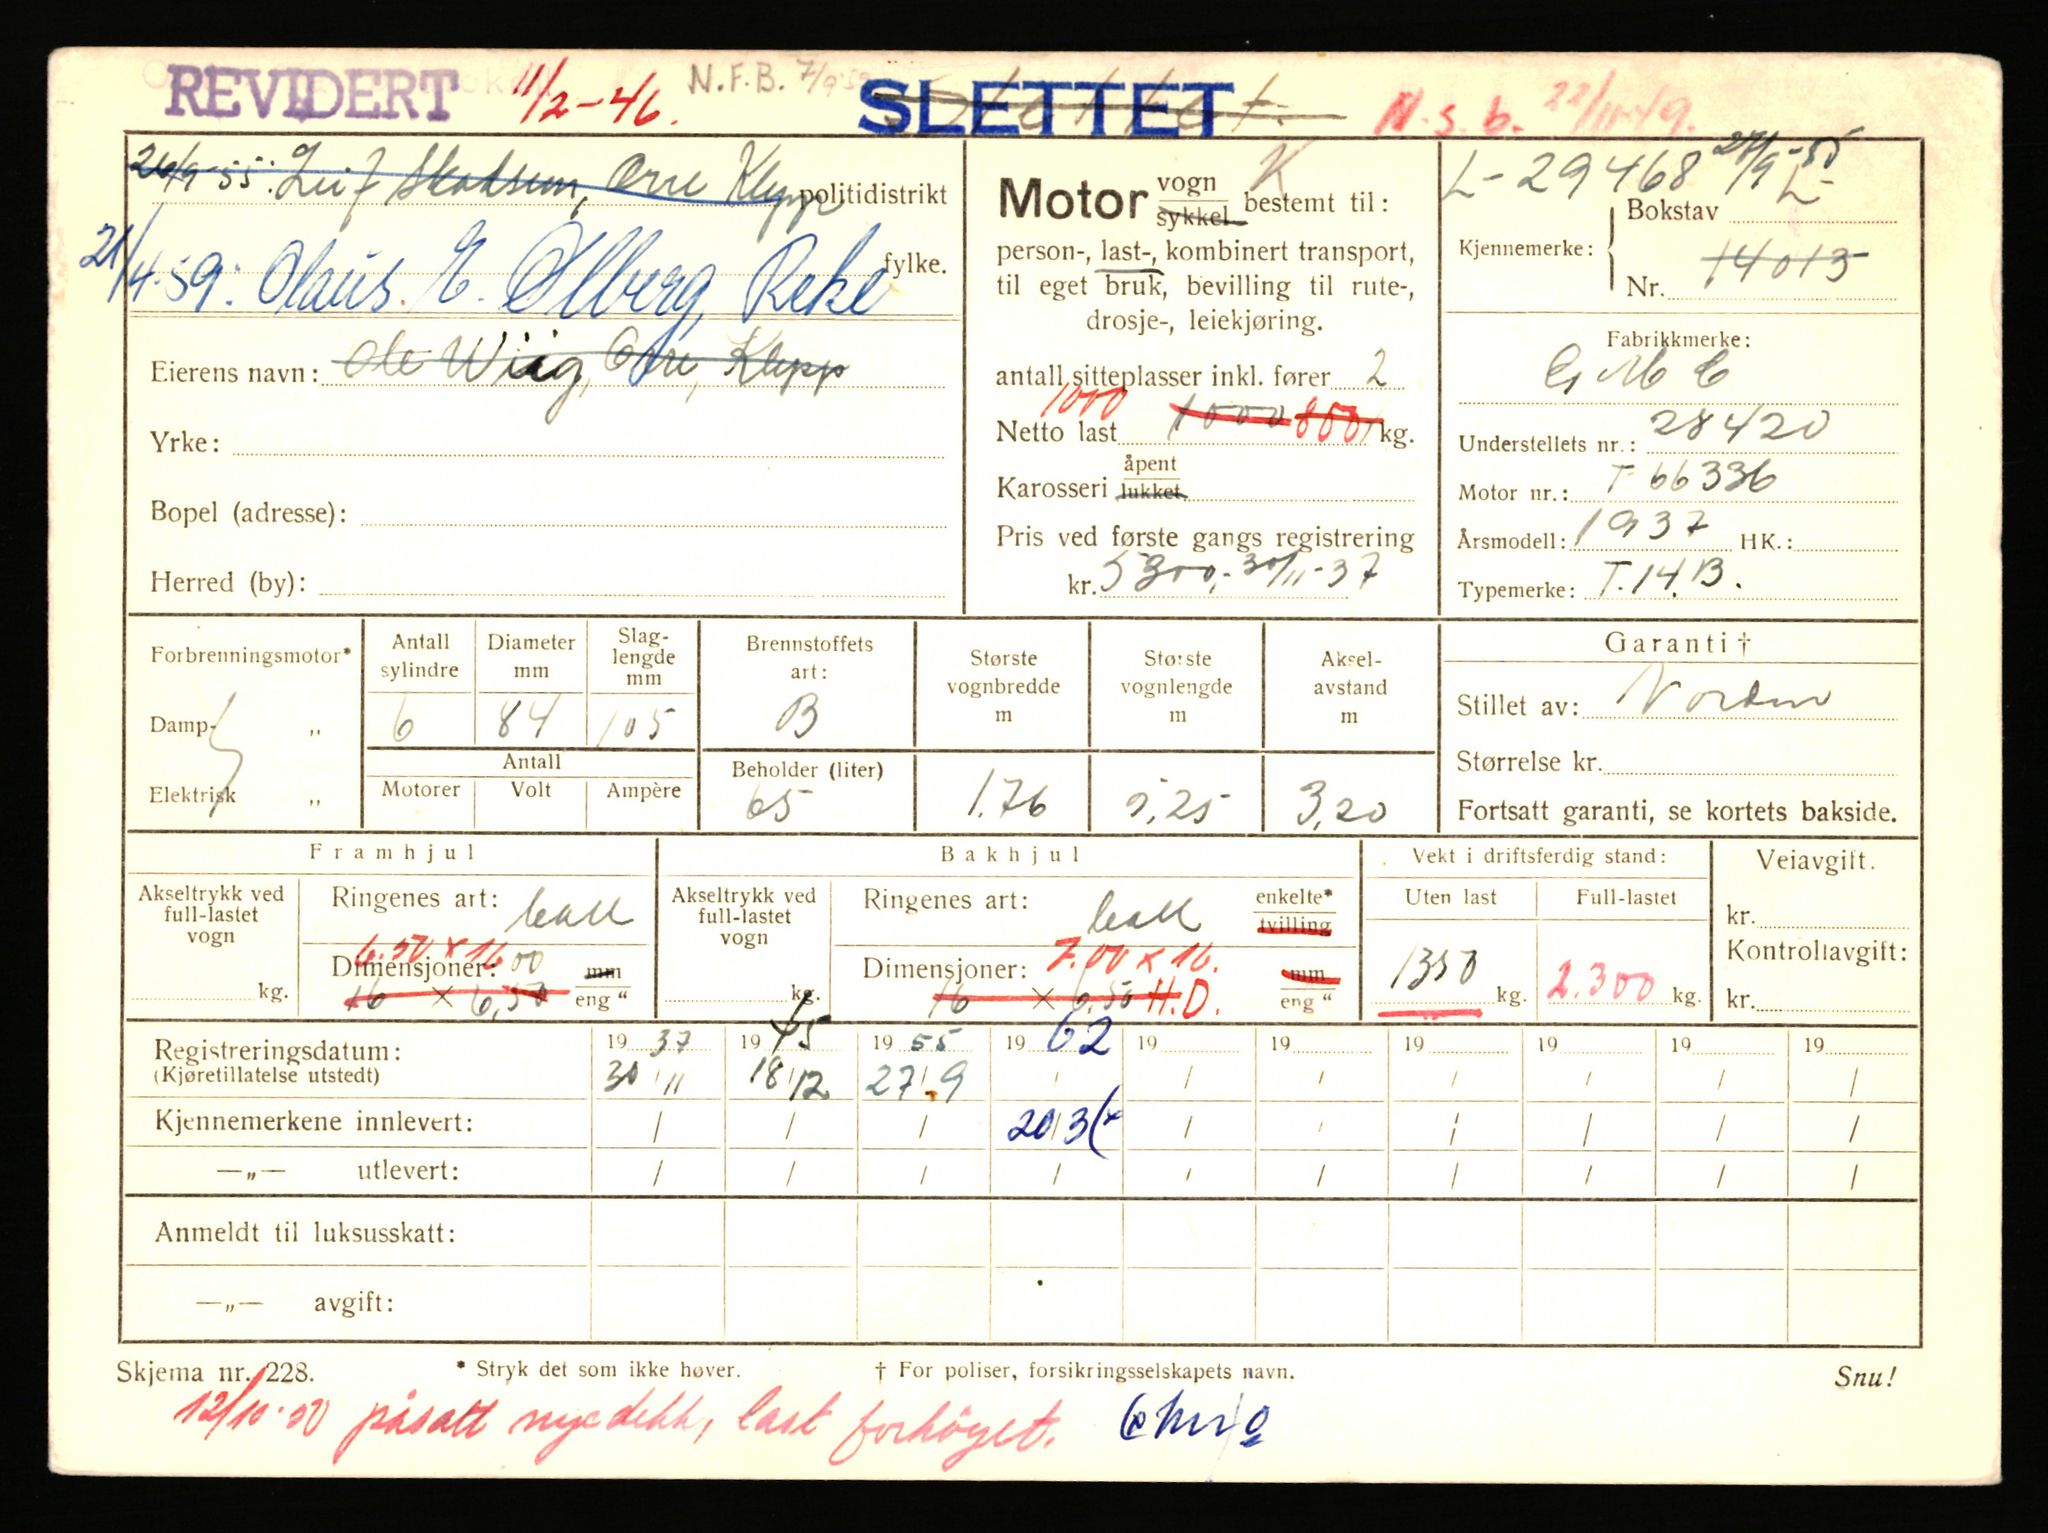 REVIDERT 11/2-46. N.F.B. 7/9 59 SLETTET N.s.b. 22/11-49.
26/9-55: Leif Skadsem, Orre Klepp politidistrikt
21/4-59: Olaus. E. Ølberg, Reke fylke.
Eierens navn: Ole Wiig, Orre, Klepp
Yrke:
Bopel (adresse):
Herred (by):
K
Motor vogn sykkel bestemt til:
person-, last-, kombinert transport,
til eget bruk, bevilling til rute-,
drosje-, leiekjøring.
antall sitteplasser inkl. fører 2
1000
Netto last 1000 850 kg.
Karosseri åpent lukket
Pris ved første gangs registrering
kr. 5300,- 30/11-37
L-29468 27/9-55
Bokstav L-
Kjennemerke:
Nr. 14013
Fabrikkmerke:
G M C
Understellets nr.: 28420
Motor nr.: T 66336
Årsmodell: 1937 HK.:
Typemerke: T.14.B.
Forbrenningsmotor*
Damp- „
Elektrisk „
Antall sylindre 6
Diameter mm 84
Slaglengde mm 105
Antall
Motorer Volt Ampère
Brennstoffets art: B
Beholder (liter) 65
Største vognbredde m 1.76
Største vognlengde m 5,25
Akselavstand m 3,20
Garanti †
Stillet av: Norden
Størrelse kr.
Fortsatt garanti, se kortets bakside.
Framhjul
Akseltrykk ved full-lastet vogn kg.
Ringenes art: ball
6.50 x 16 00
Dimensjoner: mm
16 x 6,50 eng "
Bakhjul
Akseltrykk ved full-lastet vogn kg.
Ringenes art: ball enkelte* tvilling
7.00 x 16.
Dimensjoner: mm
16 x 6,50 H.D. eng "
Vekt i driftsferdig stand:
Uten last Full-lastet
1350 kg. 2.300 kg.
Veiavgift.
kr.
Kontrollavgift:
kr.
Registreringsdatum: 19 37 19 45 19 55 19 62 19 19 19 19 19 19
(Kjøretillatelse utstedt) 30/11 18/12 27/9 / / / / / / /
Kjennemerkene innlevert: / / / 20/3 / / / / / /
—„— utlevert: / / / / / / / / / /
Anmeldt til luksusskatt:
—„— avgift:
Skjema nr. 228. * Stryk det som ikke høver. † For poliser, forsikringsselskapets navn. Snu!
12/10-50 påsatt nye dekk, last forhöyet.